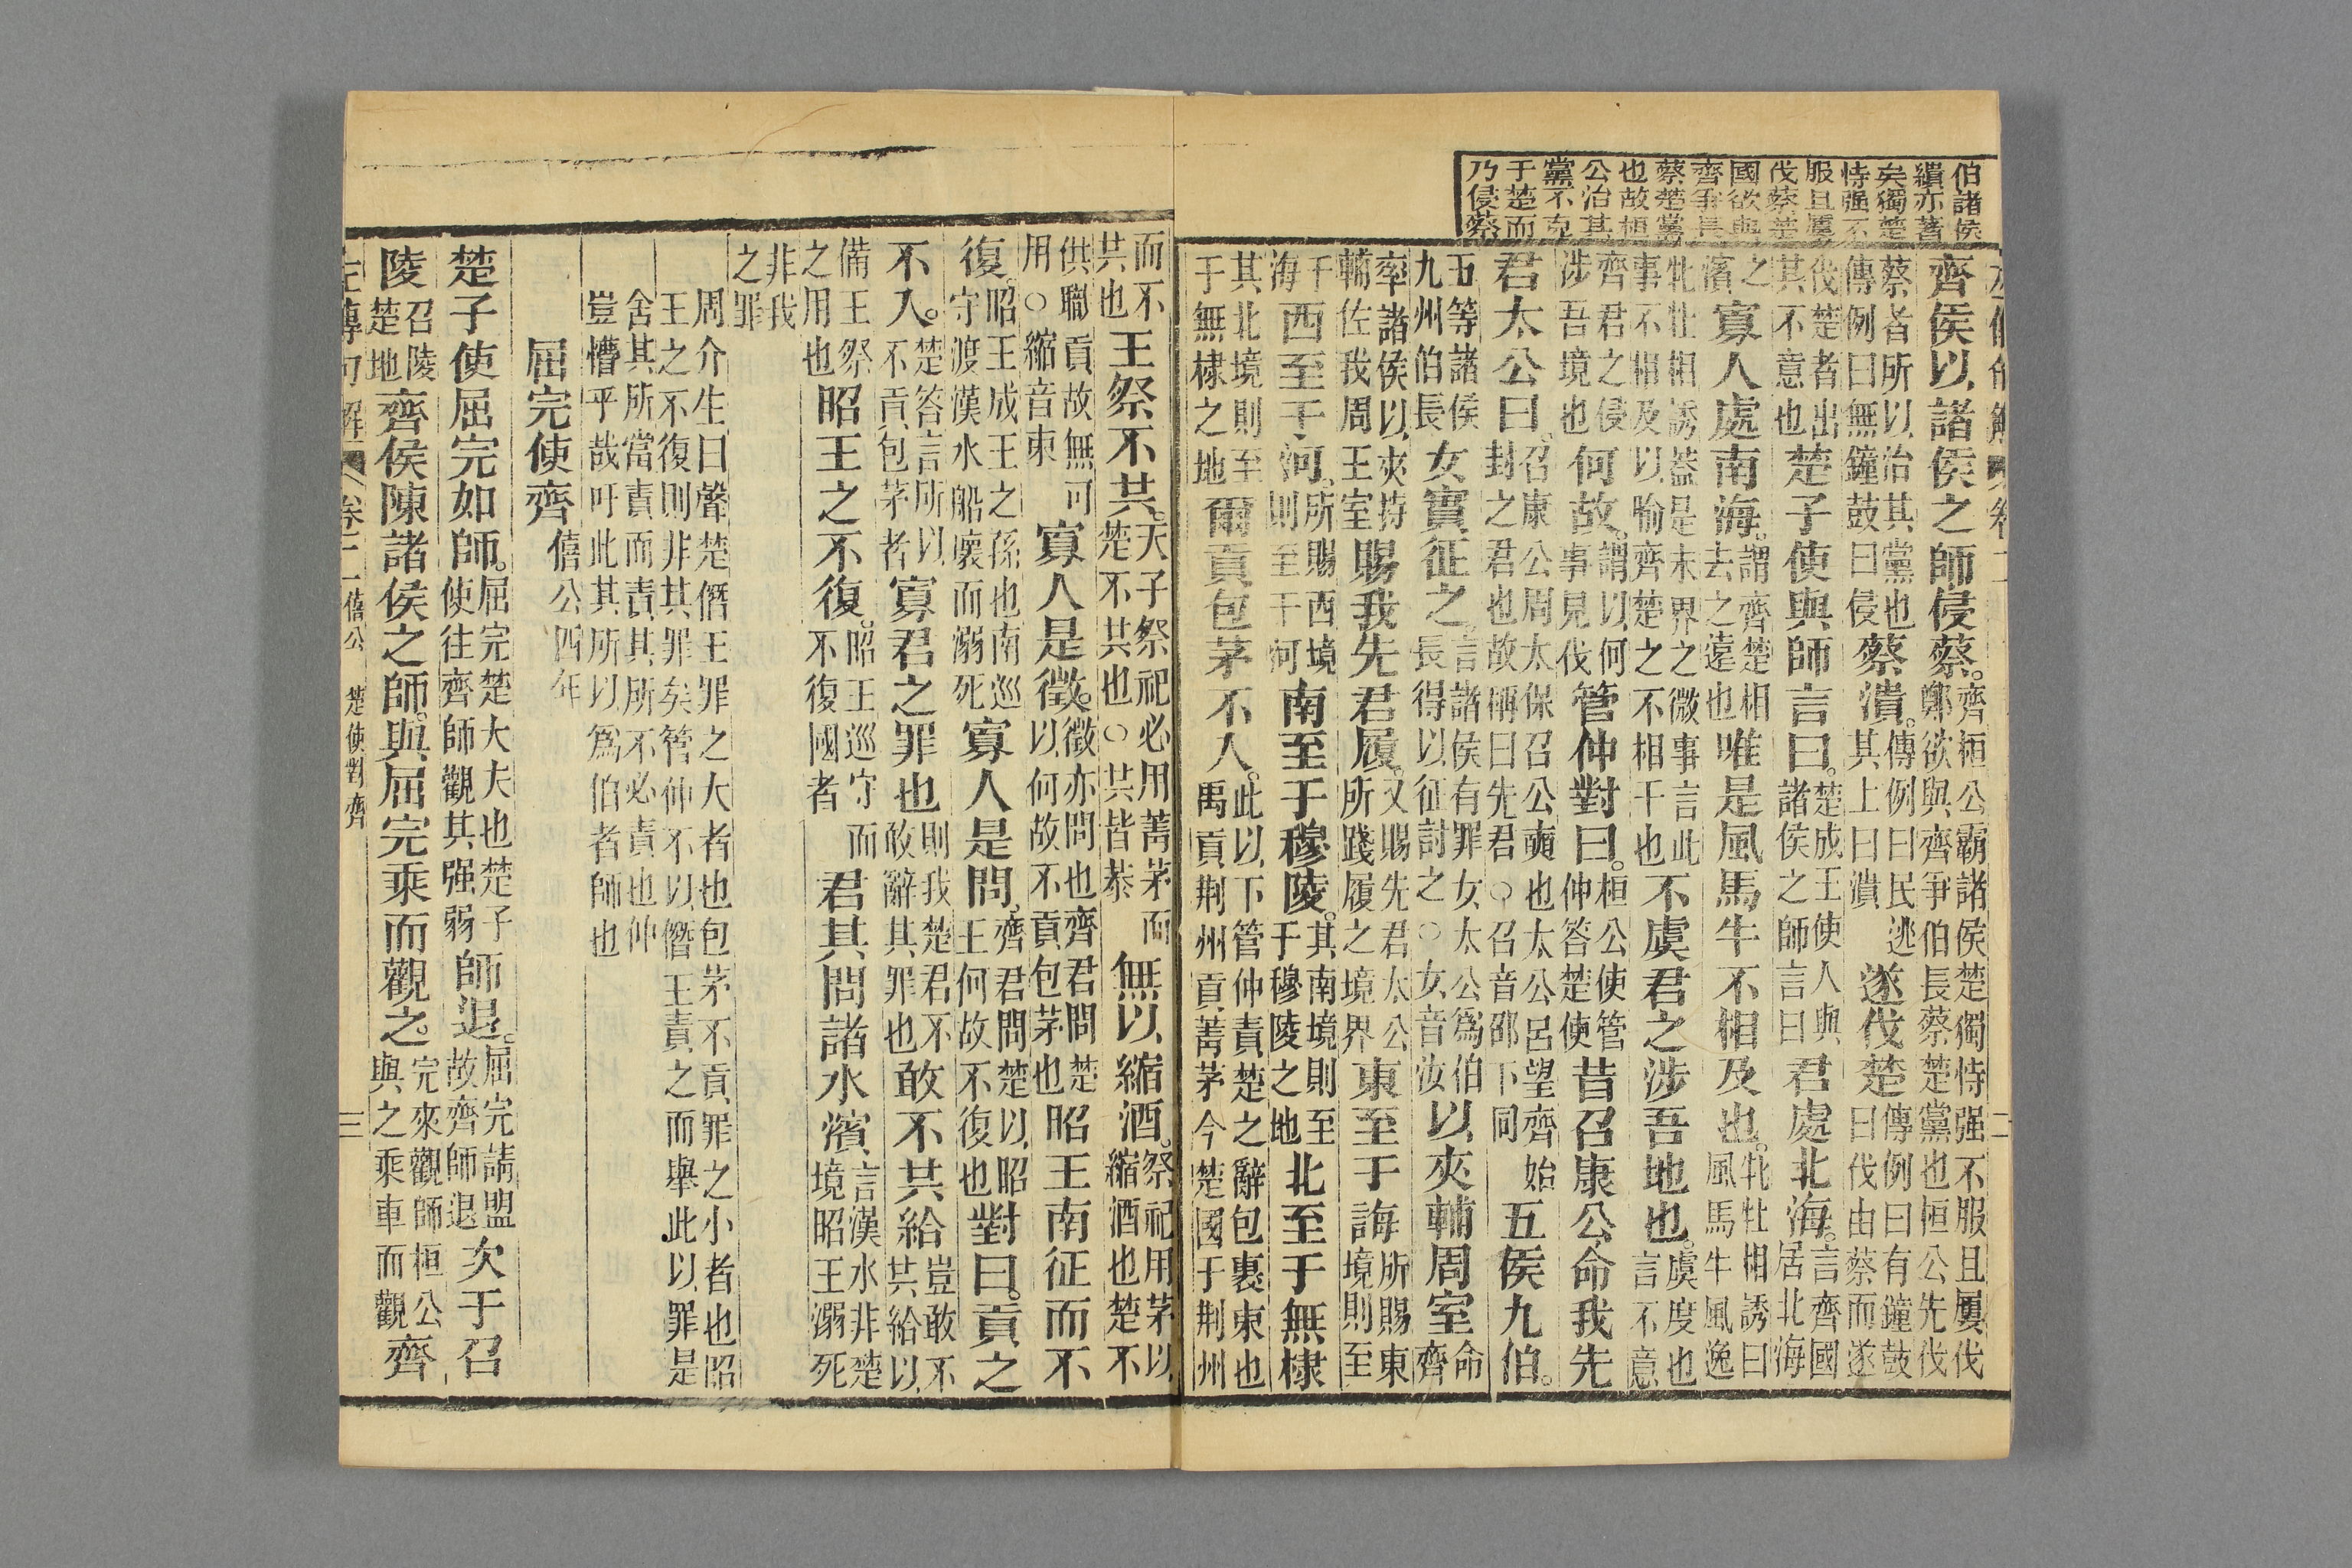 伯諸侯
績亦著
矣獨楚
恃强不
服且屢
伐蔡楚
國欲與
齊爭長
蔡楚黨
也故桓
公治其
黨不克
于楚而
乃侵蔡
齊侯以諸侯之師侵蔡齊桓公霸諸侯楚獨恃强不服且屢伐鄭欲與齊爭伯長蔡楚黨也桓公先伐
蔡者所以治其黨也傳例曰無鐘鼓曰侵蔡潰傳例曰民逃其上曰潰遂伐楚傳例曰有鐘鼓曰伐由蔡而遂
伐楚者出其不意也楚子使與師言曰楚成王使人與諸侯之師言曰君處北海言齊國居北海
之濱寡人處南海謂齊楚相去之遠也唯是風馬牛不相及也牝牡相誘曰風馬牛風逸
牝牡相誘蓋是末界之微事言此事不相及以喻齊楚之不相干也不虞君之涉吾地也虞度也言不意
齊君之侵涉吾境也何故謂以何事見伐管仲對曰桓公使管仲答楚使昔召康公命我先
君太公曰召康公周太保召公奭也太公呂望齊始封之君也故稱曰先君○召音邵下同五侯九伯
五等諸侯九州伯長女實征之言諸侯有罪女太公爲伯長得以征討之○女音汝以夾輔周室命齊
率諸侯以夾持輔佐我周王室賜我先君履又賜先君太公所踐履之境界東至于海所賜東境則至
于海西至于河所賜西境則至于河南至于穆陵其南境則至于穆陵之地北至于無棣
其北境則至于無棣之地爾貢包茅不入此以下管仲責楚之辭包裹束也禹貢荆州貢菁茅今楚國于荆州
而不共也王祭不共天子祭祀必用菁茅而楚不共也○共皆恭無以縮酒祭祀用茅以縮酒也楚不
供職貢故無可用○縮音束寡人是徵徵亦問也齊君問楚以何故不貢包茅也昭王南征而不
復昭王成王之孫也南巡守渡漢水船壞而溺死寡人是問齊君問楚以昭王何故不復也對曰貢之
不入楚答言所以不貢包茅者寡君之罪也則我楚君不敢辭其罪也敢不共給豈敢不共給以
備王祭之用也昭王之不復昭王巡守而不復國者君其問諸水濱言漢水非楚境昭王溺死
非我之罪
周介生曰聲楚僭王罪之大者也包茅不貢罪之小者也昭
王之不復則非其罪矣管仲不以僭王責之而舉此以罪是
舍其所當責而責其所不必責也仲
豈懵乎哉吁此其所以爲伯者師也
屈完使齊僖公四年
楚子使屈完如師屈完楚大夫也楚子使往齊師觀其强弱師退屈完請盟故齊師退次于召
陵召陵楚地齊侯陳諸侯之師與屈完乘而觀之完來觀師桓公與之乘車而觀齊
左傳句解卷二僖公 楚使對齊 三